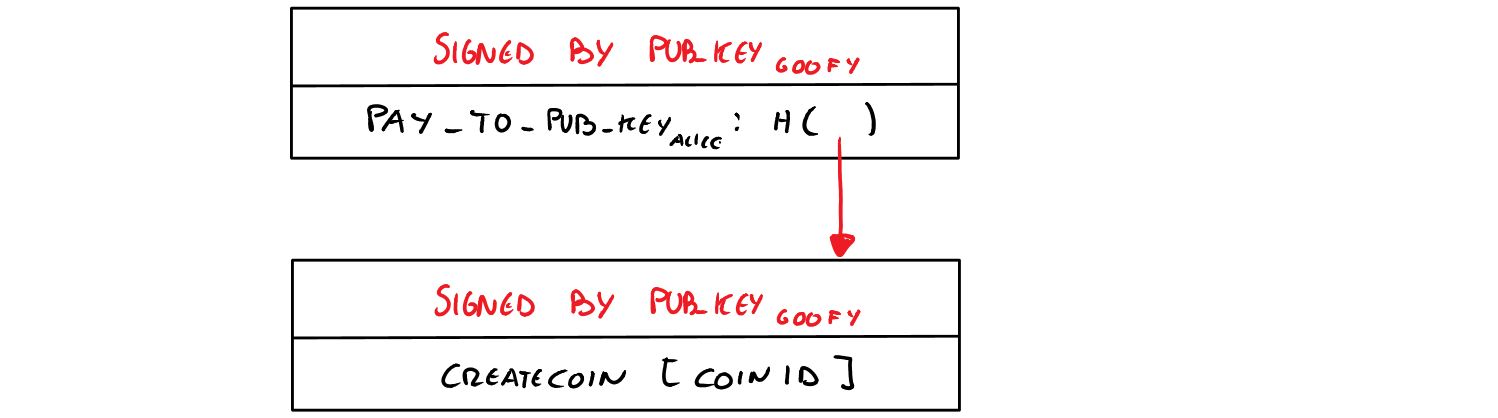 SIGNED BY PUB_KEY GOOFY
PAY_TO_PUB_KEY ALICE : H( )
SIGNED BY PUB_KEY GOOFY
CREATECOIN [COIN ID]